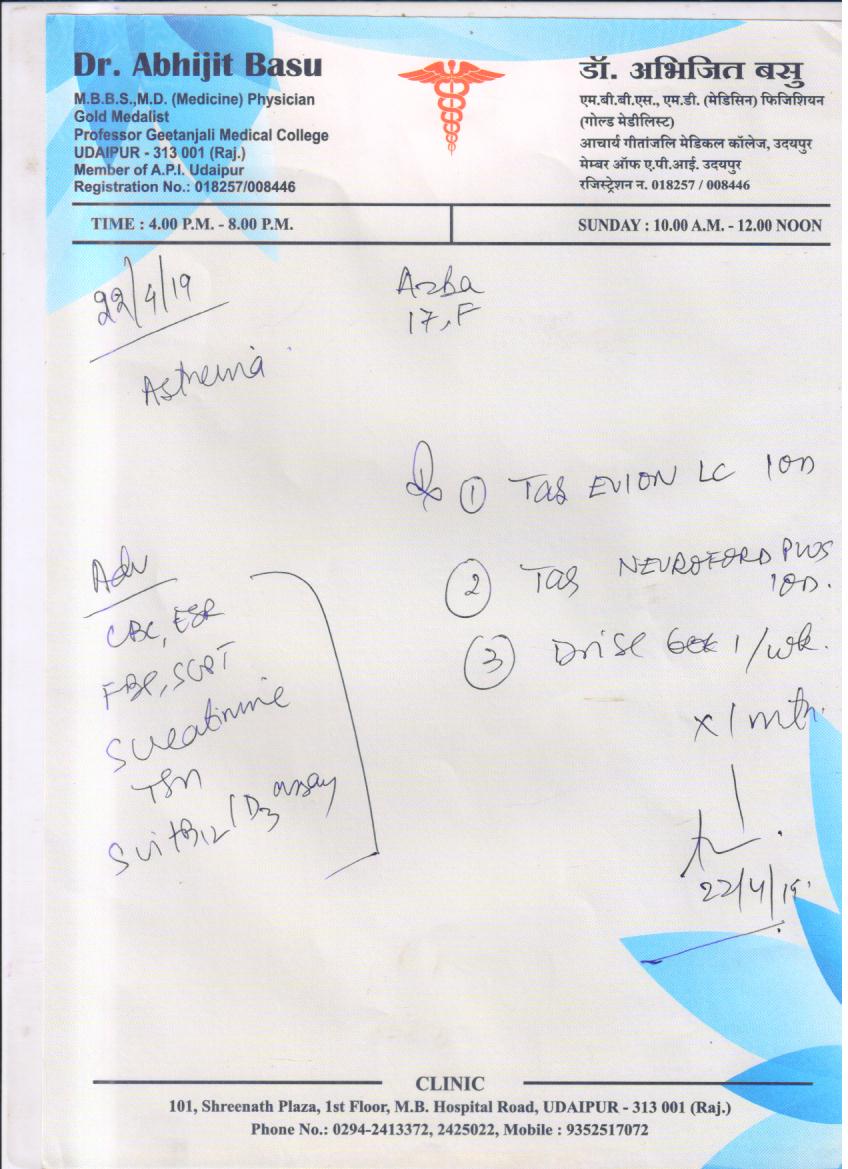 Dr. Abhijit Basu
M.B.B.S.,M.D. (Medicine) Physician
Gold Medalist
Professor Geetanjali Medical College
UDAIPUR - 313 001 (Raj.)
Member of A.P.I. Udaipur
Registration No.: 018257/008446
डॉ. अभिजित बसु
एम.बी.बी.एस., एम.डी. (मेडिसिन) फिजिशियन
(गोल्ड मेडीलिस्ट)
आचार्य गीतांजलि मेडिकल कॉलेज, उदयपुर
मेम्बर ऑफ ए.पी.आई. उदयपुर
रजिस्ट्रेशन न. 018257 / 008446
TIME : 4.00 P.M. - 8.00 P.M.
SUNDAY : 10.00 A.M. - 12.00 NOON
22/4/19
Azba
17, F
Asthenia
Rx ① Tab EVION LC 1OD
② Tab NEUROFORD PLUS
1OD.
③ Drise 60k 1/wk.
x 1 mth.
22/4/19
Adv
CBC, ESR
FBS, SGPT
S Creatinine
TSH
S Vit B12 / D3 assay
CLINIC
101, Shreenath Plaza, 1st Floor, M.B. Hospital Road, UDAIPUR - 313 001 (Raj.)
Phone No.: 0294-2413372, 2425022, Mobile : 9352517072